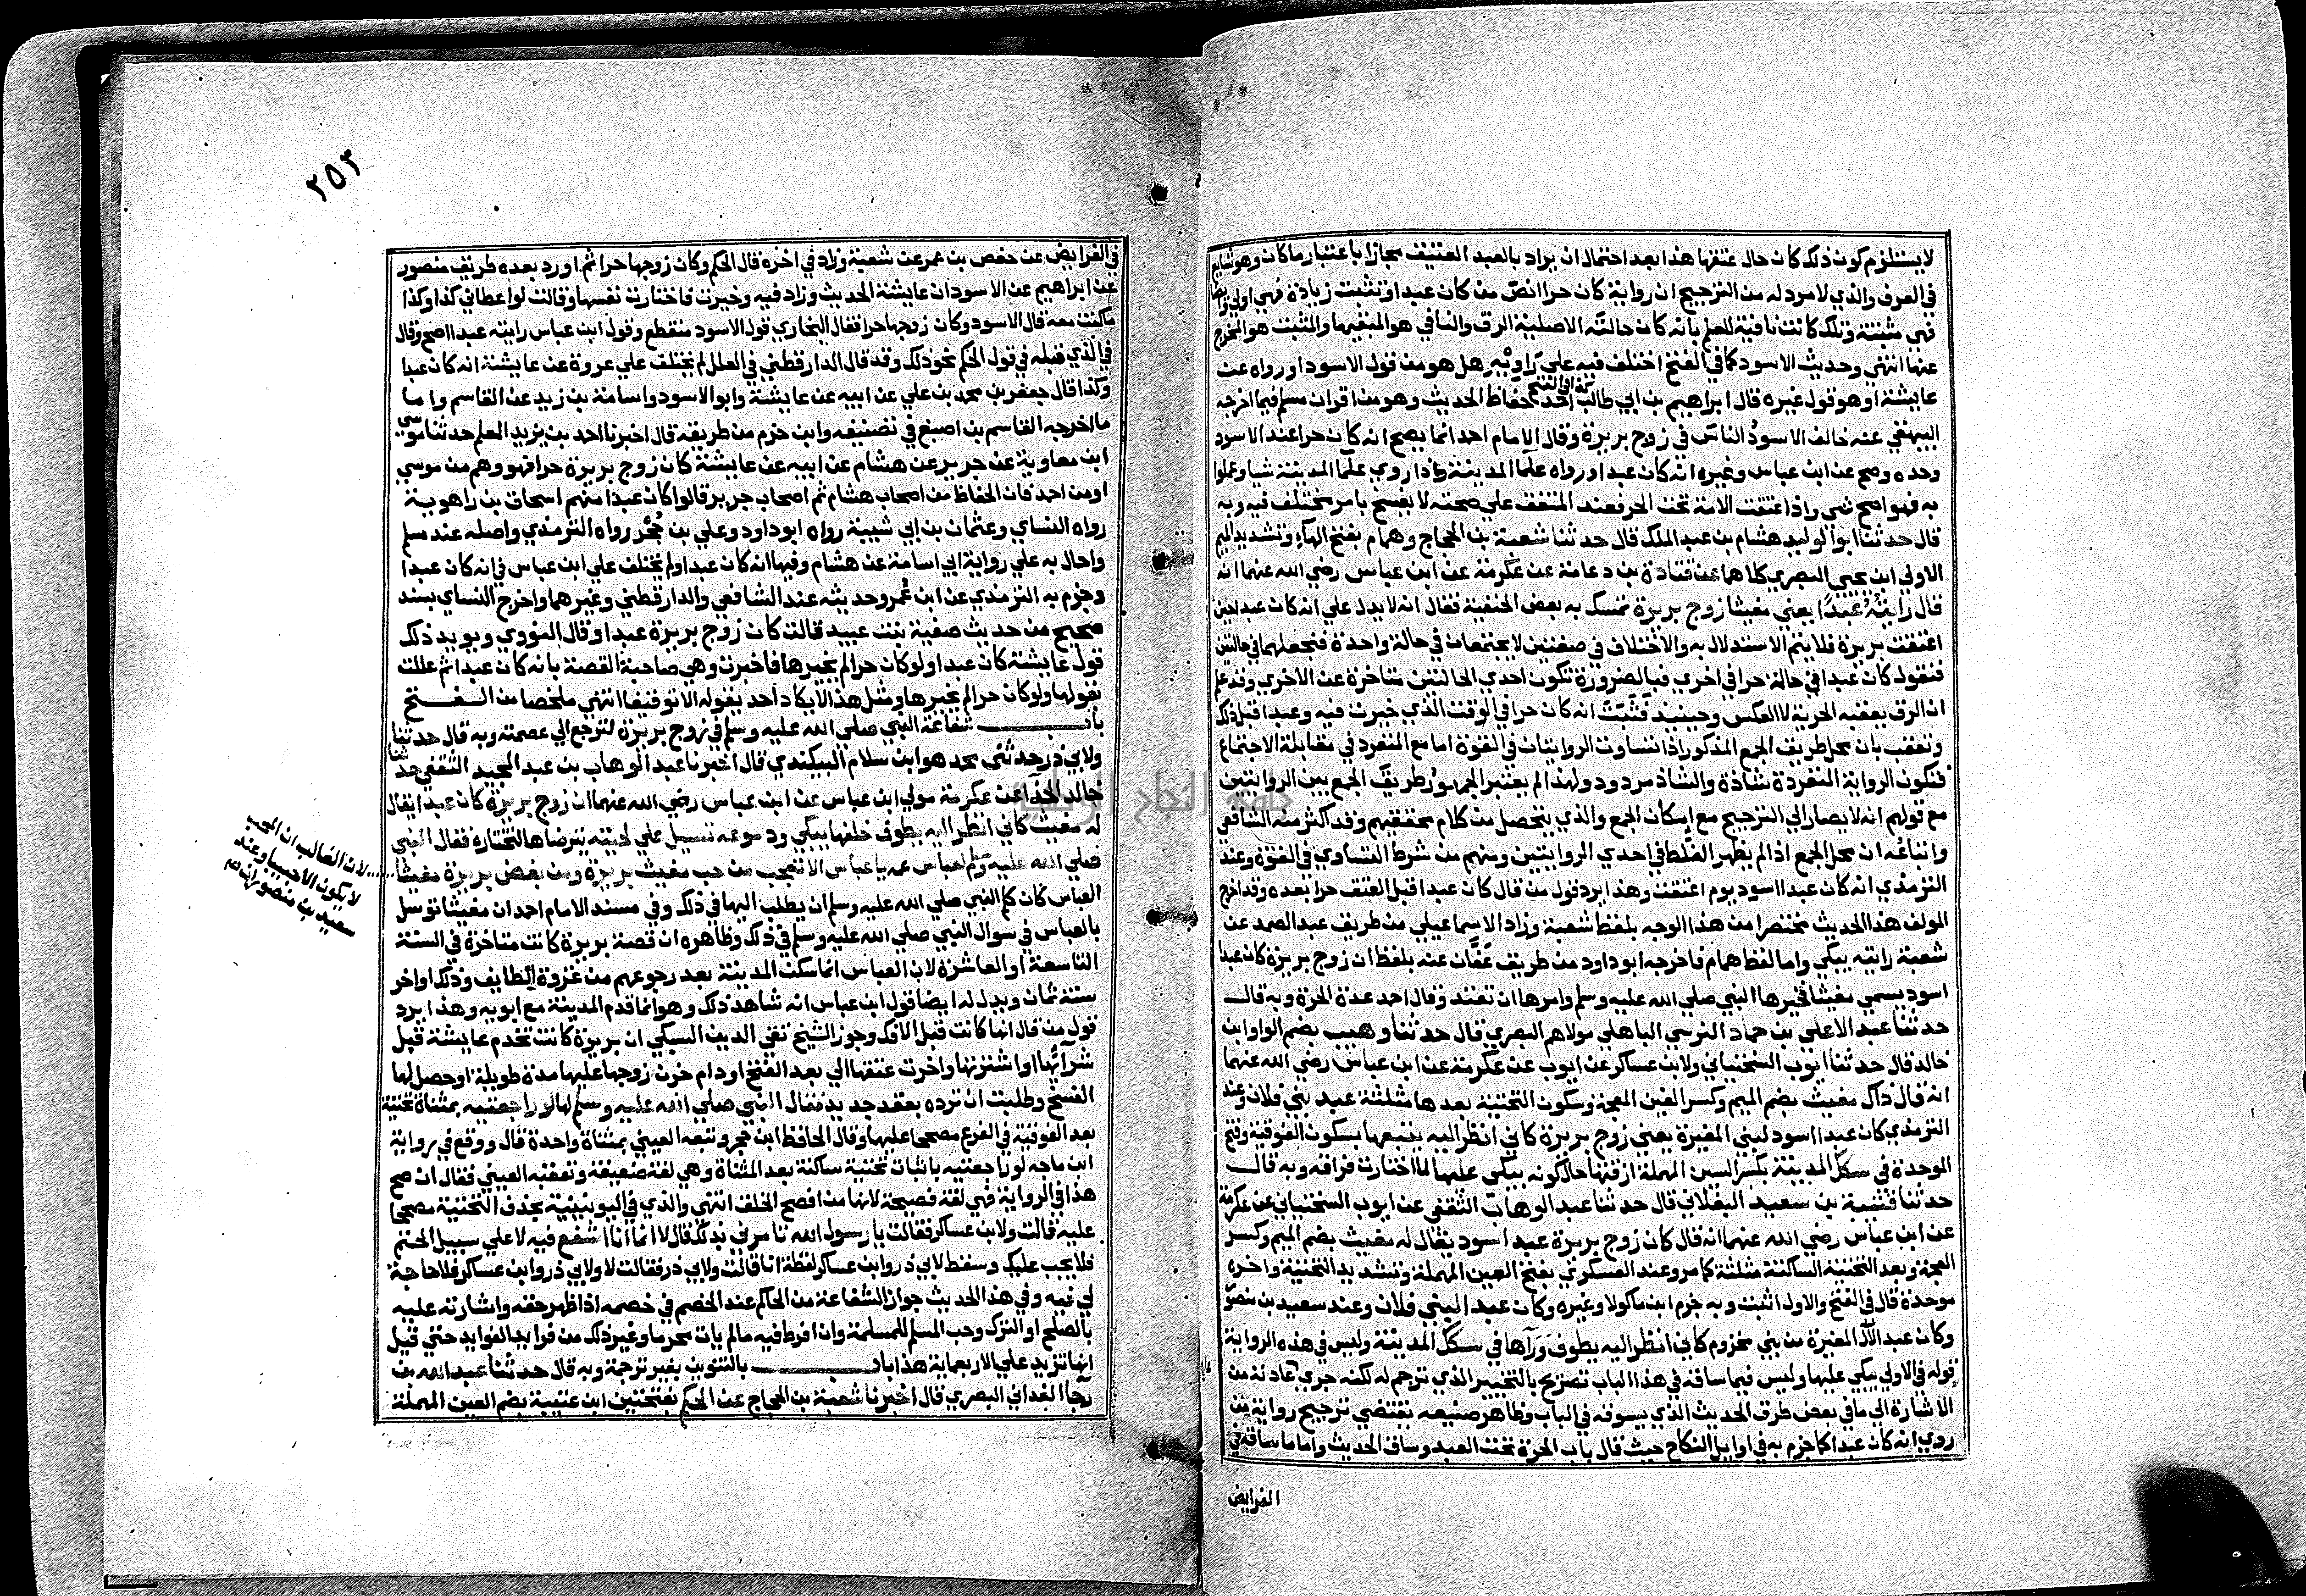 لا يستلزم كون ذلك كان حال عتقها هذا بعد احتمال ان يراد بالعبد العتيق مجازا باعتبار ما كان وهو شايع
في العرف والذي لا مرد له من الترجيح ان رواية كان حرا انص من كان عبدا وتثبت زيادة فهي اولي وايضا
فهي مثبتة وتلك كانت نافية للعلم بانه كان حالته الاصلية الرق والنافي هو المبقيها والمثبت هو المخرج
عنها انتهي وحديث الاسود كما في الفتح اختلف فيه علي راويه هل هو من قول الاسود او رواه عن
عايشة او هو قول غيره قال ابراهيم بن ابي طالب احد حفاظ الحديث وهو من اقران مسلم فيما اخرجه
البيهقي عنه خالف الاسود الناس في زوج بريرة وقال الامام احد انما يصح انه كان حرا عند الاسود
وحده وصح عن ابن عباس وغيره انه كان عبدا ورواه علما المدينة واذا روي علما المدينة شيا وعملوا
به فهو اصح شي واذا عتقت الامة تحت الحر فعند المتفق علي صحته لا يفسخ بامر مختلف فيه وبه
قال حدثنا ابو الوليد هشام بن عبد الملك قال حدثنا شعبة بن الحجاج وهمام بفتح الهاء وتشديد الميم
الاولي ابن يحيي البصري كلاهما عن قتادة بن دعامة عن عكرمة عن ابن عباس رضي الله عنهما انه
قال رايته عبدا يعني مغيثا زوج بريرة تمسك به بعض الحنفية فقال انه لا يدل علي انه كان عبدا حين
اعتقت بريرة فلا يتم الاستدلال به والاختلاف في صفتين لا يجتمعان في حالة واحدة فنجعلهما في حالتين
فنقول كان عبدا في حالة حرا في اخري فبالضرورة تكون احدي الحالتين متاخرة عن الاخري وقد علم
ان الرق يعقبه الحرية لا العكس وحينيذ فثبت انه كان حرا في الوقت الذي خيرت فيه وعبدا قبل ذلك
وتعقب بان محل طريق الجمع المذكور اذا تساوت الروايتان في القوة اما مع التفرد في مقابلة الاجتماع
فتكون الرواية المنفردة شاذة والشاذ مردود ولهذا لم يعتبر الجمهور طريق الجمع بين الروايتين
مع قولهم انه لا يصار الي الترجيح مع امكان الجمع والذي يتحصل من كلام محققيهم وقد اكثر منه الشافعي
واتباعه ان محل الجمع اذا لم يظهر الغلط في احدي الروايتين ومنهم من شرط التساوي في القوة وعند
الترمذي انه كان عبدا اسود يوم اعتقت وهذا يرد قول من قال كان عبدا قبل العتق حرا بعده وقد اخرج
المولف هذا الحديث مختصرا من هذا الوجه بلفظ شعبة وزاد الاسماعيلي من طريق عبد الصمد عن
شعبة رايته يبكي واما لفظ همام فاخرجه ابو داود من طريق عفان عنه بلفظ ان زوج بريرة كان عبدا
اسود يسمي مغيثا فخيرها النبي صلي الله عليه وسلم وامرها ان تعتد وقال احد عدة الحرة وبه قال
حدثنا عبد الاعلي بن حماد النرسي الباهلي مولاهم البصري قال حدثنا وهيب بضم الواو ابن
خالد قال حدثنا ايوب السختياني ولابن عساكر عن ايوب عن عكرمة عن ابن عباس رضي الله عنهما
انه قال ذاك مغيث بضم الميم وكسر الغين المعجمة وسكون التحتية بعدها مثلثة عبد بني فلان وعند
الترمذي كان عبدا اسود لبني المغيرة يعني زوج بريرة كاني انظر اليه يتبعها بسكون الفوقية وفتح
الموحدة في سكك المدينة بكسر السين المهملة ازقتها حال كونه يبكي عليها لما اختارت فراقه وبه قال
حدثنا قتيبة بن سعيد البغلاني قال حدثنا عبد الوهاب الثقفي عن ايوب السختياني عن عكرمة
عن ابن عباس رضي الله عنهما انه قال كان زوج بريرة عبدا اسود يقال له مغيث بضم الميم وكسر
المعجمة وبعد التحتية الساكنة مثلثة كما مر وعند العسكري بفتح العين المهملة وتشديد التحتية واخره
موحدة قال في الفتح والاول اثبت وبه جزم ابن ماكولا وغيره وكان عبدا لبني فلان وعند سعيد بن منصور
وكان عبدا لآل المغيرة من بني مخزوم كاني انظر اليه يطوف وراها في سكك المدينة وليس في هذه الرواية
قوله في الاولي يبكي عليها وليس فيما ساقه في هذا الباب تصريح بالتخيير الذي ترجم له لكنه جري عادته من
الاشارة الي ما في بعض طرق الحديث الذي يسوقه في الباب وظاهر صنيعه يقتضي ترجيح رواية من
روي انه كان عبدا كما جزم به في اوايل النكاح حيث قال باب الحرة تحت العبد وساق الحديث واما ما ساقه في
الفرايض
٢٥٣
في الفرايض عن حفص بن عمر عن شعبة وزاد في اخره قال الحكم وكان زوجها حرا ثم اورد بعده طريق منصور
عن ابراهيم عن الاسود ان عايشة الحديث وزاد فيه وخيرت فاختارت نفسها وقالت لو اعطاني كذا وكذا
ما كنت معه قال الاسود وكان زوجها حرا فقال البخاري قول الاسود منقطع وقول ابن عباس رايته عبدا اصح وقال
في الذي قبله في قول الحكم نحو ذلك وقد قال الدارقطني في العلل لم يختلف علي عروة عن عايشة انه كان عبدا
وكذا قال جعفر بن محمد بن علي عن ابيه عن عايشة وابو الاسود واسامة بن زيد عن القاسم واما
ما اخرجه القاسم بن اصبغ في تصنيفه وابن حزم من طريقه قال اخبرنا احد بن يزيد المعلم حدثنا موسي
ابن معاوية عن جرير عن هشام عن ابيه عن عايشة كان زوج بريرة حرا فهو وهم من موسي
او من احد فان الحفاظ من اصحاب هشام ثم اصحاب جرير قالوا كان عبدا منهم اسحاق بن راهوية
رواه النساي وعثمان بن ابي شيبة رواه ابو داود وعلي بن حجر رواه الترمذي واصله عند مسلم
واحال به علي رواية ابي اسامة عن هشام وفيها انه كان عبدا ولم يختلف علي ابن عباس في انه كان عبدا
وجزم به الترمذي عن ابن عمر وحديثه عند الشافعي والدارقطني وغيرهما واخرج النساي بسند
صحيح من حديث صفية بنت عبيد قالت كان زوج بريرة عبدا وقال النووي ويويد ذلك
قول عايشة كان عبدا ولو كان حرا لم يخيرها فاخبرت وهي صاحبة القصة بانه كان عبدا ثم عللت
بقولها ولو كان حرا لم يخيرها ومثل هذا لا يكاد احد يقوله الا توقيفا انتهي ملخصا من الفتح
باب شفاعة النبي صلي الله عليه وسلم في زوج بريرة لترجع الي عصمته وبه قال حدثنا
ولابي ذر حدثني محمد هو ابن سلام البيكندي قال اخبرنا عبد الوهاب بن عبد المجيد الثقفي حدثنا
خالد الحذا عن عكرمة مولي ابن عباس عن ابن عباس رضي الله عنهما ان زوج بريرة كان عبدا يقال
له مغيث كاني انظر اليه يطوف خلفها يبكي ودموعه تسيل علي لحيته يترضاها لتختاره فقال النبي
صلي الله عليه وسلم لعباس عمه يا عباس الا تعجب من حب مغيث بريرة ومن بغض بريرة مغيثا
لان الغالب ان المحب
لا يكون الا حبيبا وعند
سعيد بن منصور ان
العباس كان كلم النبي صلي الله عليه وسلم ان يطلب اليها في ذلك وفي مسند الامام احد ان مغيثا توسل
بالعباس في سوال النبي صلي الله عليه وسلم في ذلك وظاهره ان قصة بريرة كانت متاخرة في السنة
التاسعة او العاشرة لان العباس انما سكن المدينة بعد رجوعهم من غزوة الطايف وذلك اواخر
سنة ثمان ويدل له ايضا قول ابن عباس انه شاهد ذلك وهو انما قدم المدينة مع ابويه وهذا يرد
قول من قال انها كانت قبل الافك وجوز الشيخ تقي الدين السبكي ان بريرة كانت تخدم عايشة قبل
شرائها او اشترتها واخرت عتقها الي بعد الفتح او دام حزن زوجها عليها مدة طويلة او حصل لها
الفسخ وطلبت ان ترده بعقد جديد فقال النبي صلي الله عليه وسلم لها لو راجعتيه بمثناة تحتية
بعد الفوقية في الفرع مصححا عليها وقال الحافظ ابن حجر وتبعه العيني بمثناة واحدة قال ووقع في رواية
ابن ماجه لو راجعتيه باثبات تحتية ساكنة بعد المثناة وهي لغة ضعيفة وتعقبه العيني فقال ان صح
هذا في الرواية فهي لغة فصيحة لانها من افصح الخلق انتهي والذي في اليونينية بحذف التحتية مصححا
عليه قالت ولابن عساكر فقالت يا رسول الله تامرني بذلك قال لا انما انا اشفع فيه لا علي سبيل الحتم
فلا يجب عليك وسقط لابي ذر وابن عساكر لفظة انا قالت ولابي ذر فقالت لا ولابي ذر وابن عساكر فلا حاجة
لي فيه وفي هذا الحديث جواز الشفاعة من الحاكم عند الخصم في خصمه اذا ظهر حقه واشارته عليه
بالصلح او الترك وحب المسلم للمسلمة وان افرط فيه ما لم يات محرما وغير ذلك من فرايد الفوايد حتي قيل
انها تزيد علي الاربعماية هذا باب بالتنوين بغير ترجمة وبه قال حدثنا عبد الله بن
رجا الغداني البصري قال اخبرنا شعبة بن الحجاج عن الحكم بفتحتين ابن عتيبة بضم العين المهملة